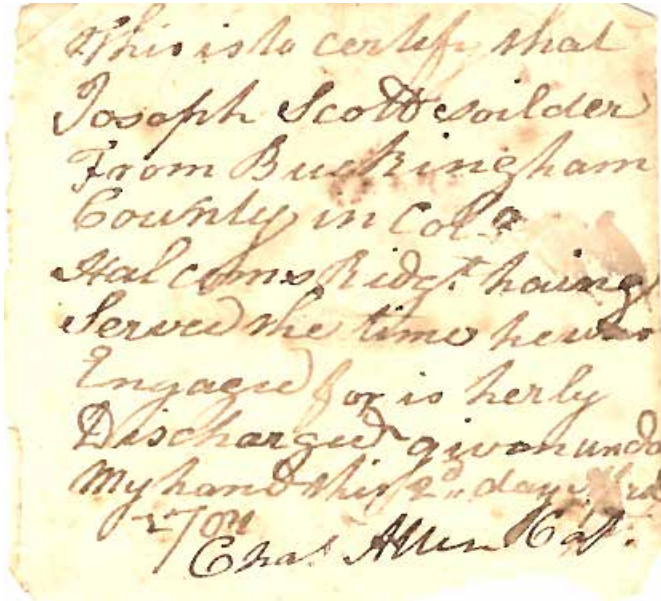 This is to certify that
Joseph Scott soilder
From Buckingham
County in Colo
Halcoms Ridgt. haing
Served the time he was
Engaged for is herly
Discharged given unda
My hand this 2d day
Chas. Allen Cap.